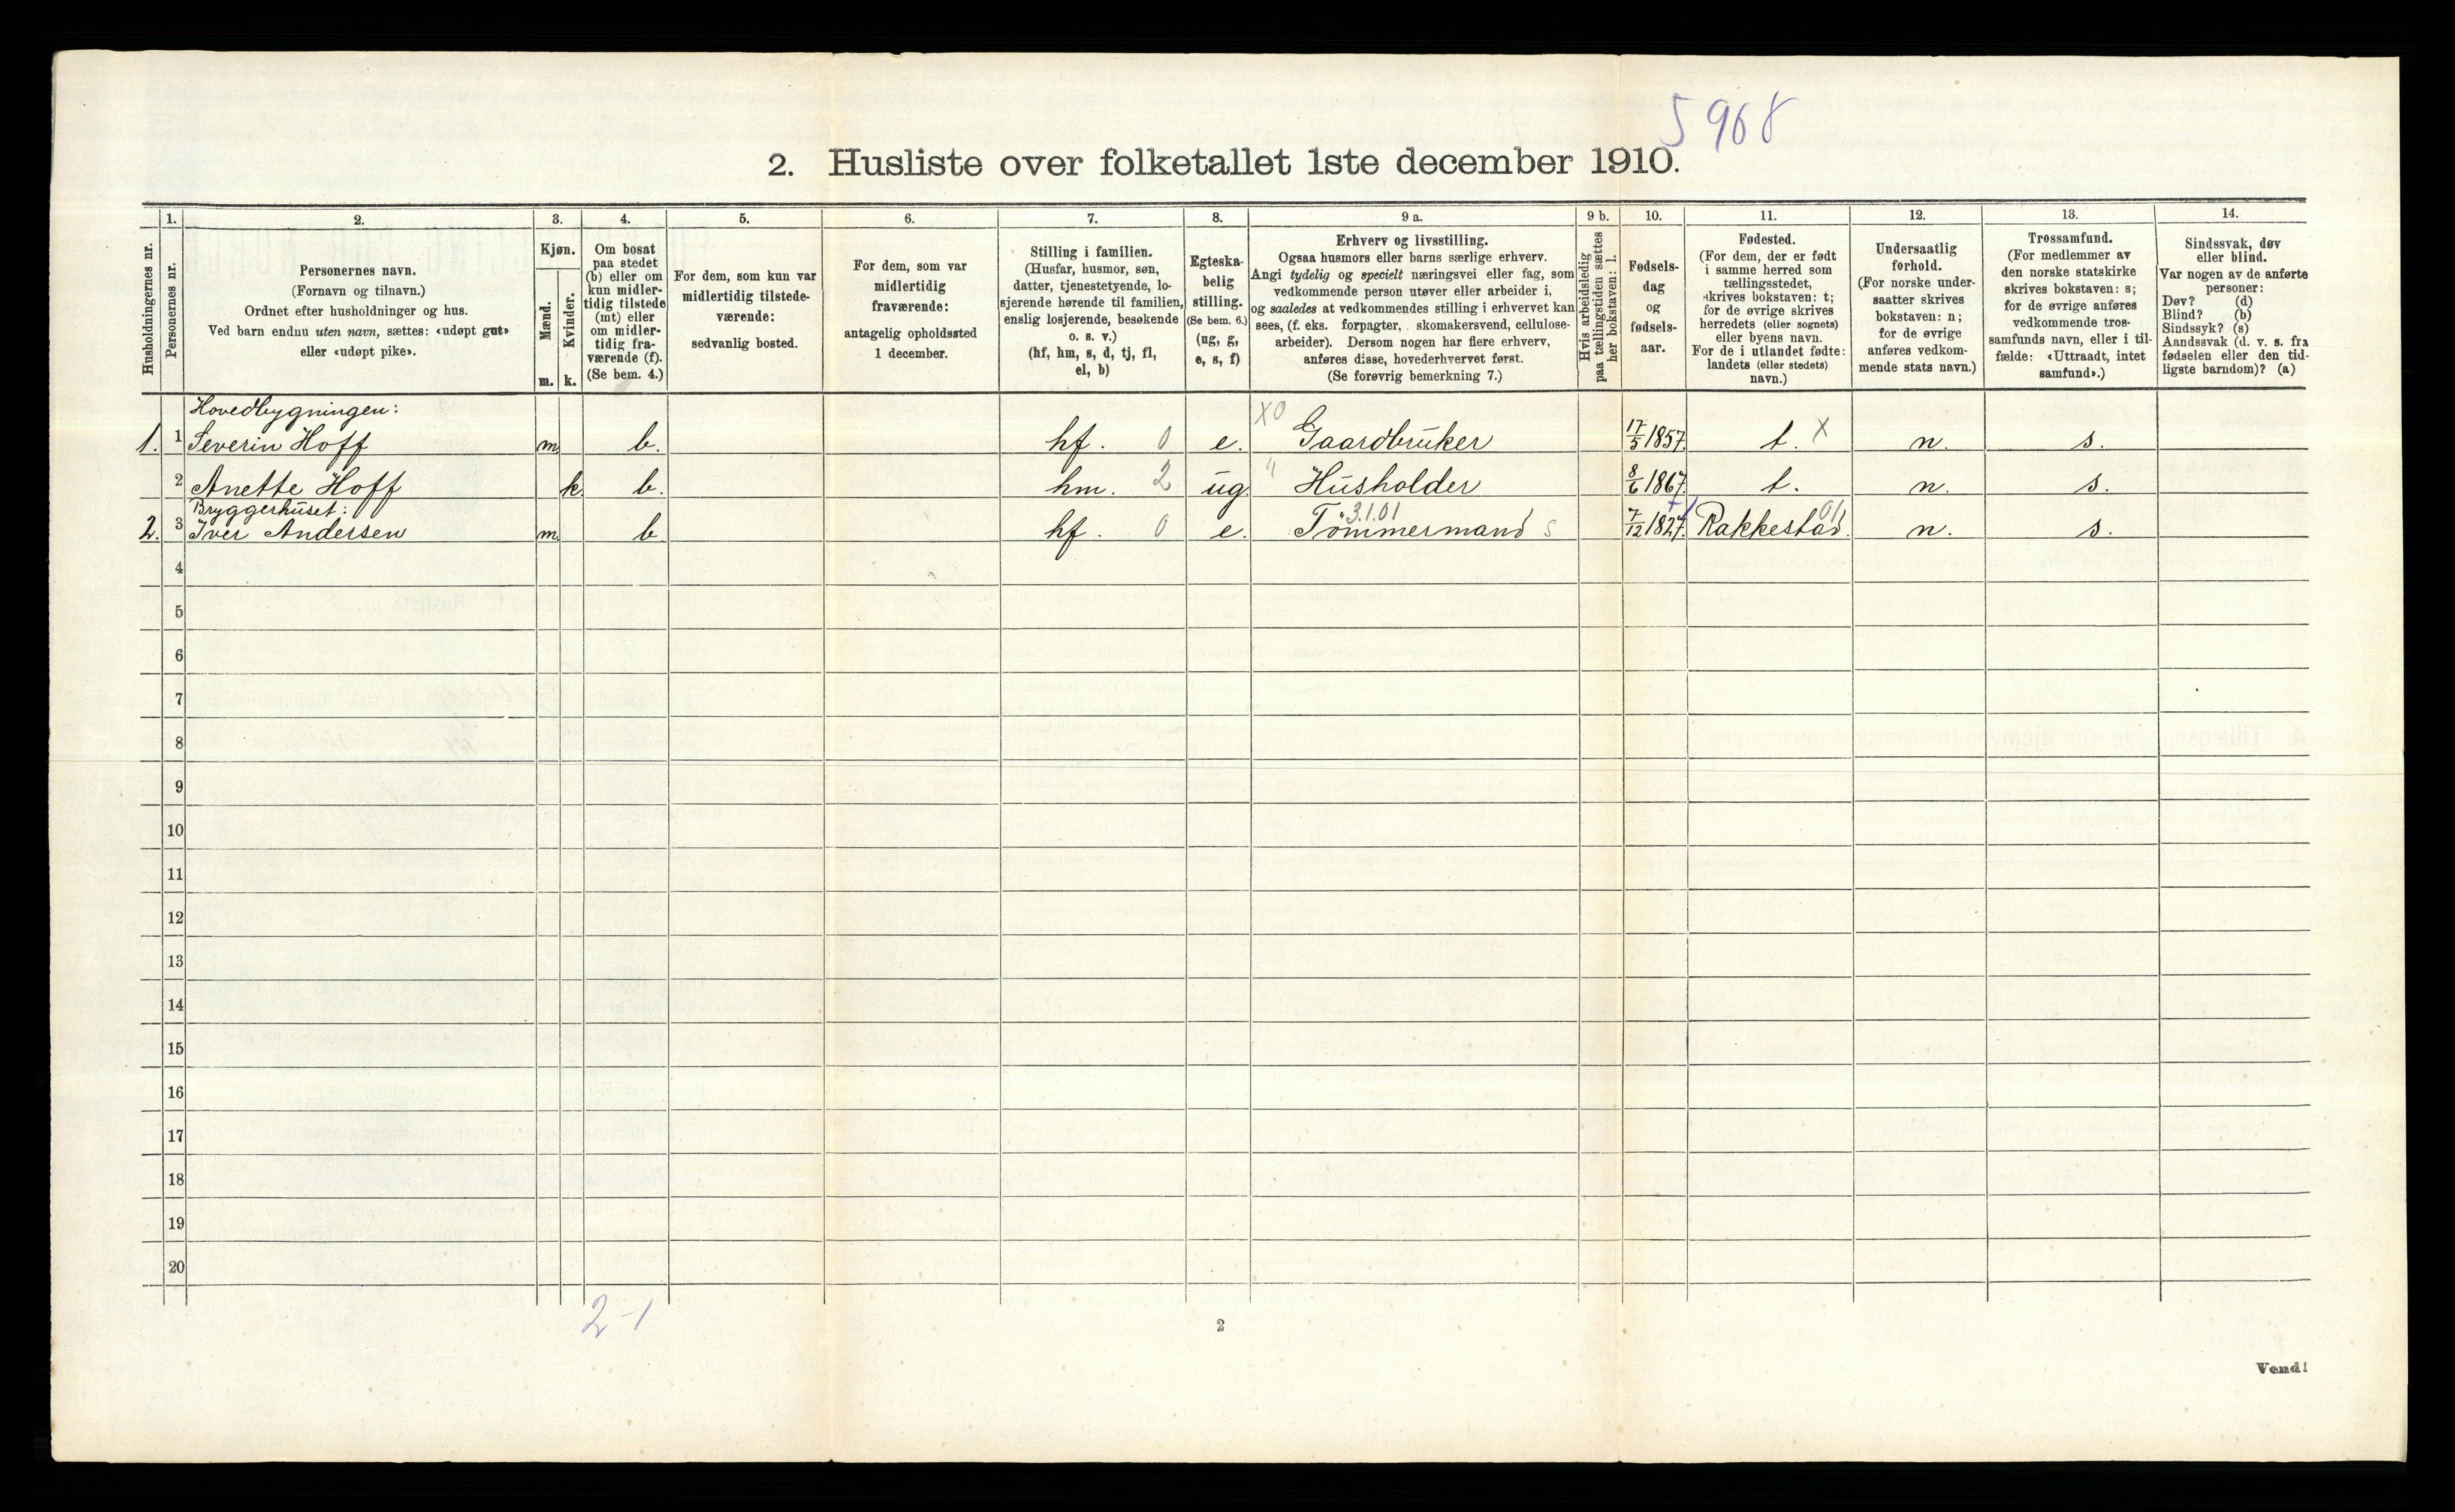 5968
2. Husliste over folketallet 1ste december 1910.
Husholdningernes nr.
1.
Personernes nr.
2.
Personernes navn.
(Fornavn og tilnavn.)
Ordnet efter husholdninger og hus.
Ved barn endnu uten navn, sættes: «udøpt gut»
eller «udøpt pike».
3.
Kjøn.
Mænd.
Kvinder.
m. k.
4.
Om bosat
paa stedet
(b) eller om
kun midler-
tidig tilstede
(mt) eller
om midler-
tidig fra-
værende (f).
(Se bem. 4.)
5.
For dem, som kun var
midlertidig tilstede-
værende:
sedvanlig bosted.
6.
For dem, som var
midlertidig
fraværende:
antagelig opholdssted
1 december.
7.
Stilling i familien.
(Husfar, husmor, søn,
datter, tjenestetyende, lo-
sjerende hørende til familien,
enslig losjerende, besøkende
o. s. v.)
(hf, hm, s, d, tj, fl,
el, b)
8.
Egteska-
belig
stilling.
(Se bem. 6.)
(ug, g,
e, s, f)
9 a.
Erhverv og livsstilling.
Ogsaa husmors eller barns særlige erhverv.
Angi tydelig og specielt næringsvei eller fag, som
vedkommende person utøver eller arbeider i,
og saaledes at vedkommendes stilling i erhvervet kan
sees, (f. eks. forpagter, skomakersvend, cellulose-
arbeider). Dersom nogen har flere erhverv,
anføres disse, hovederhvervet først.
(Se forøvrig bemerkning 7.)
9 b.
Hvis arbeidsledig
paa tællingstiden sættes
her bokstaven: l.
10.
Fødsels-
dag
og
fødsels-
aar.
11.
Fødested.
(For dem, der er født
i samme herred som
tællingsstedet,
skrives bokstaven: t;
for de øvrige skrives
herredets (eller sognets)
eller byens navn.
For de i utlandet fødte:
landets (eller stedets)
navn.)
12.
Undersaatlig
forhold.
(For norske under-
saatter skrives
bokstaven: n;
for de øvrige
anføres vedkom-
mende stats navn.)
13.
Trossamfund.
(For medlemmer av
den norske statskirke
skrives bokstaven: s;
for de øvrige anføres
vedkommende tros-
samfunds navn, eller i til-
fælde: «Uttraadt, intet
samfund».)
14.
Sindssvak, døv
eller blind.
Var nogen av de anførte
personer:
Døv? (d)
Blind? (b)
Sindssyk? (s)
Aandssvak (d. v. s. fra
fødselen eller den tid-
ligste barndom)? (a)
Hovedbygningen:
1. 1 Severin Hoff m b. hf. 0 e. X0 Gaardbruker 17/5 1857. t. X n. s.
2 Anette Hoff k b. hm. 2 ug " Husholder 8/6 1867. t. n. s.
Bryggerhuset:
2. 3 Iver Andersen m b hf. 0 e. 3.1.01 Tømmermand s 7/12 1827. Rakkestad. 01 n. s.
4
5
6
7
8
9
10
11
12
13
14
15
16
17
18
19
20
2-1
2
Vend!